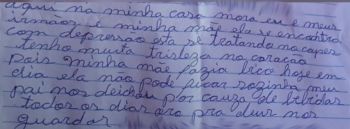 aqui na minha casa mora eu e meus
irmãos e minha mãe ela se encontra
com depressão esta se tratando na capes
tenho muita tristeza no coração
pois minha mãe fazia bico hoje em
dia ela não pode ficar sozinha meu
pai nos deichou por cauza de bibidas
todos os dias oro pra deus nos
guardar